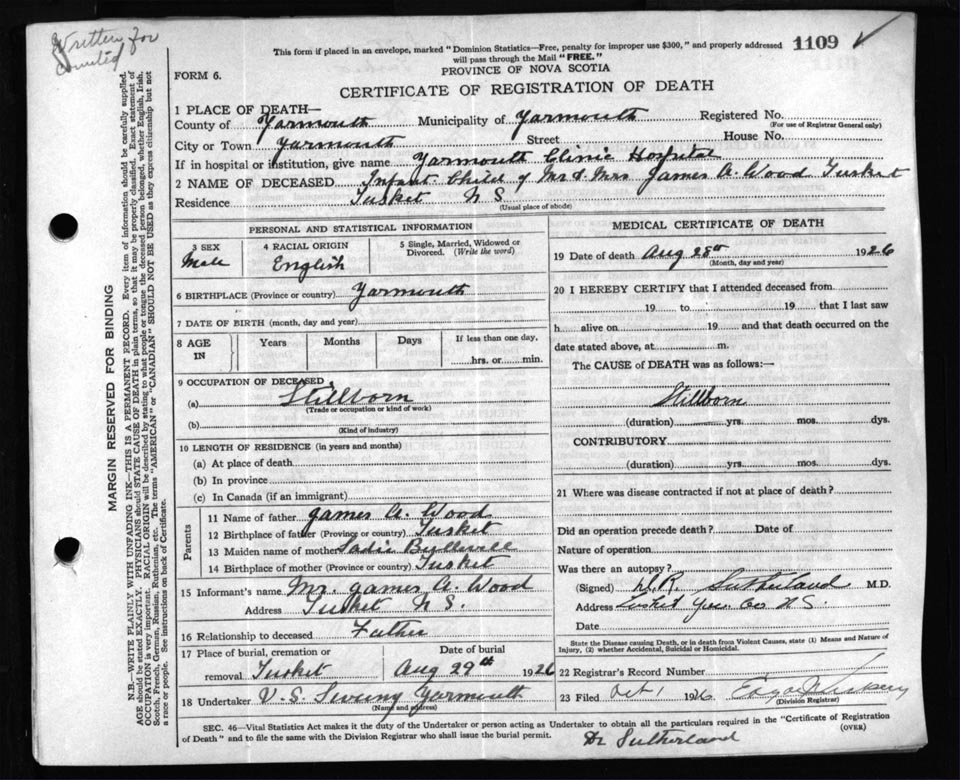 Written for
This form if placed in an envelope, marked "Dominion Statistics—Free, penalty for improper use $300," and properly addressed
will pass through the Mail "FREE."
1109 ✓
FORM 6.
PROVINCE OF NOVA SCOTIA
CERTIFICATE OF REGISTRATION OF DEATH
MARGIN RESERVED FOR BINDING
N.B.—WRITE PLAINLY WITH UNFADING INK—THIS IS A PERMANENT RECORD. Every item of information should be carefully supplied.
AGE should be stated EXACTLY. PHYSICIANS should STATE CAUSE OF DEATH in plain terms, so that it may be properly classified. Exact statement of
OCCUPATION is very important. RACIAL ORIGIN will be described by stating to what people or tongue the deceased person belonged, whether English, Irish,
Scotch, French, German, Russian, Ruthenian, etc. The terms "AMERICAN" or "CANADIAN" SHOULD NOT BE USED as they express citizenship but not
a race or people. See instructions on back of Certificate.
1 PLACE OF DEATH—
County of Yarmouth Municipality of Yarmouth Registered No.
(For use of Registrar General only)
City or Town Yarmouth Street House No.
If in hospital or institution, give name Yarmouth Clinic Hospital
2 NAME OF DECEASED Infant Child of Mr & Mrs James A. Wood Tusket
Residence Tusket N S
(Usual place of abode)
PERSONAL AND STATISTICAL INFORMATION
3 SEX 4 RACIAL ORIGIN 5 Single, Married, Widowed or
Divorced. (Write the word)
Male English
6 BIRTHPLACE (Province or country) Yarmouth
7 DATE OF BIRTH (month, day and year)
8 AGE IN Years Months Days If less than one day,
hrs. or min.
9 OCCUPATION OF DECEASED
(a) Stillborn
(Trade or occupation or kind of work)
(b)
(Kind of industry)
10 LENGTH OF RESIDENCE (in years and months)
(a) At place of death
(b) In province
(c) In Canada (if an immigrant)
Parents
11 Name of father James A. Wood
12 Birthplace of father (Province or country) Tusket
13 Maiden name of mother Sadie
14 Birthplace of mother (Province or country) Tusket
15 Informant's name Mr. James A. Wood
Address Tusket N S.
16 Relationship to deceased Father
17 Place of burial, cremation or removal Tusket
Date of burial Aug 29th 1926
18 Undertaker V. S. Sweeny Yarmouth
(Name and address)
MEDICAL CERTIFICATE OF DEATH
19 Date of death Aug 28th 1926
(Month, day and year)
20 I HEREBY CERTIFY that I attended deceased from
19 to 19 that I last saw
h alive on 19 and that death occurred on
date stated above, at m.
The CAUSE of DEATH was as follows:—
Stillborn
(duration) yrs. mos. dys.
CONTRIBUTORY
(duration) yrs. mos. dys.
21 Where was disease contracted if not at place of death?
Did an operation precede death? Date of
Nature of operation
Was there an autopsy?
(Signed) Sutherland M.D.
Address Tusket Yar. Co. N S.
Date
State the Disease causing Death, or in death from Violent Causes, state (1) Means and Nature of
Injury, (2) whether Accidental, Suicidal or Homicidal.
22 Registrar's Record Number
23 Filed Oct 1 1926
(Division Registrar)
SEC. 46—Vital Statistics Act makes it the duty of the Undertaker or person acting as Undertaker to obtain all the particulars required in the "Certificate of Registration
of Death" and to file the same with the Division Registrar who shall issue the burial permit.
(OVER)
Dr Sutherland